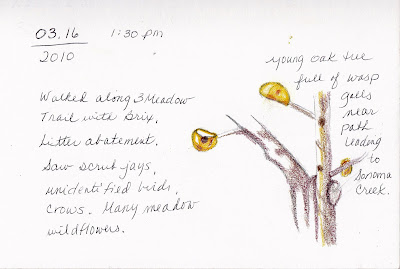 03.16 1:30 pm
2010
Walked along 3 Meadow
Trail with Brix.
Litter abatement.
Saw scrub jays,
unidentified birds,
crows. Many meadow
wildflowers.
young oak tree
full of wasp
galls
near
path
leading
to
Sonoma
Creek.